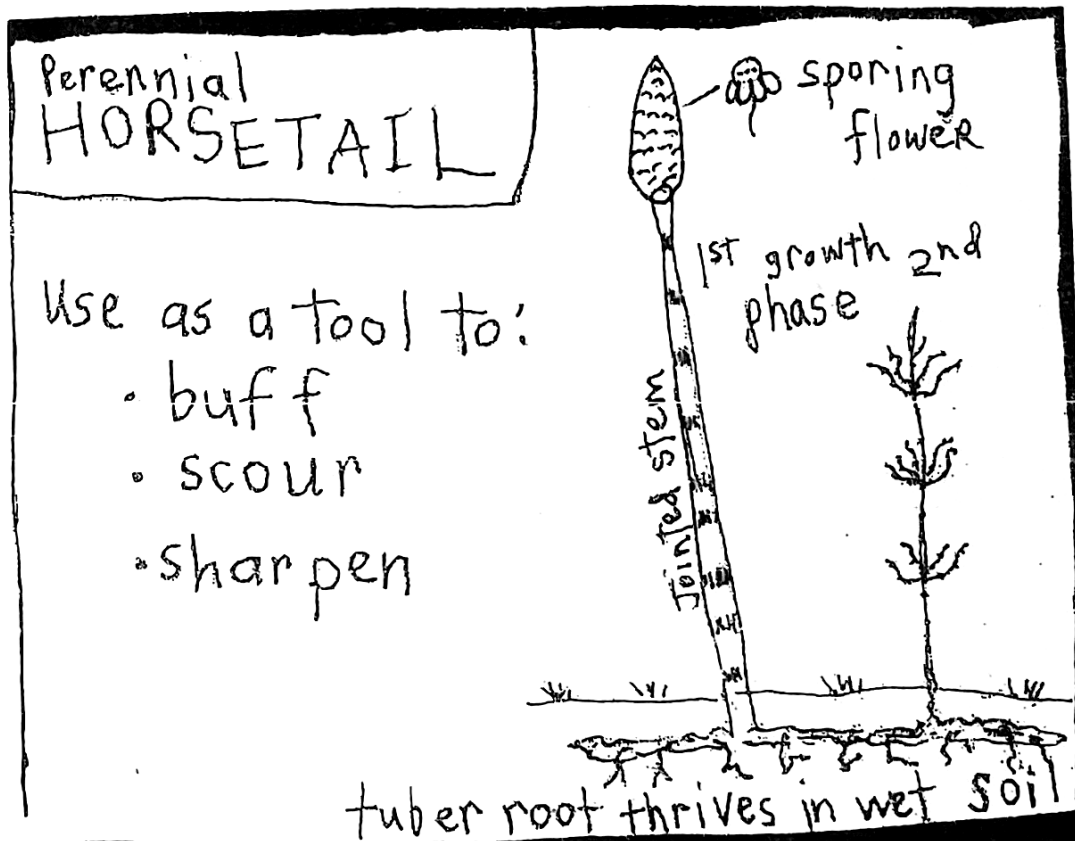 Perennial
HORSETAIL
Use as a tool to:
· buff
· scour
· sharpen
sporing
flower
1st growth 2nd
phase
Jointed stem
tuber root thrives in wet soil